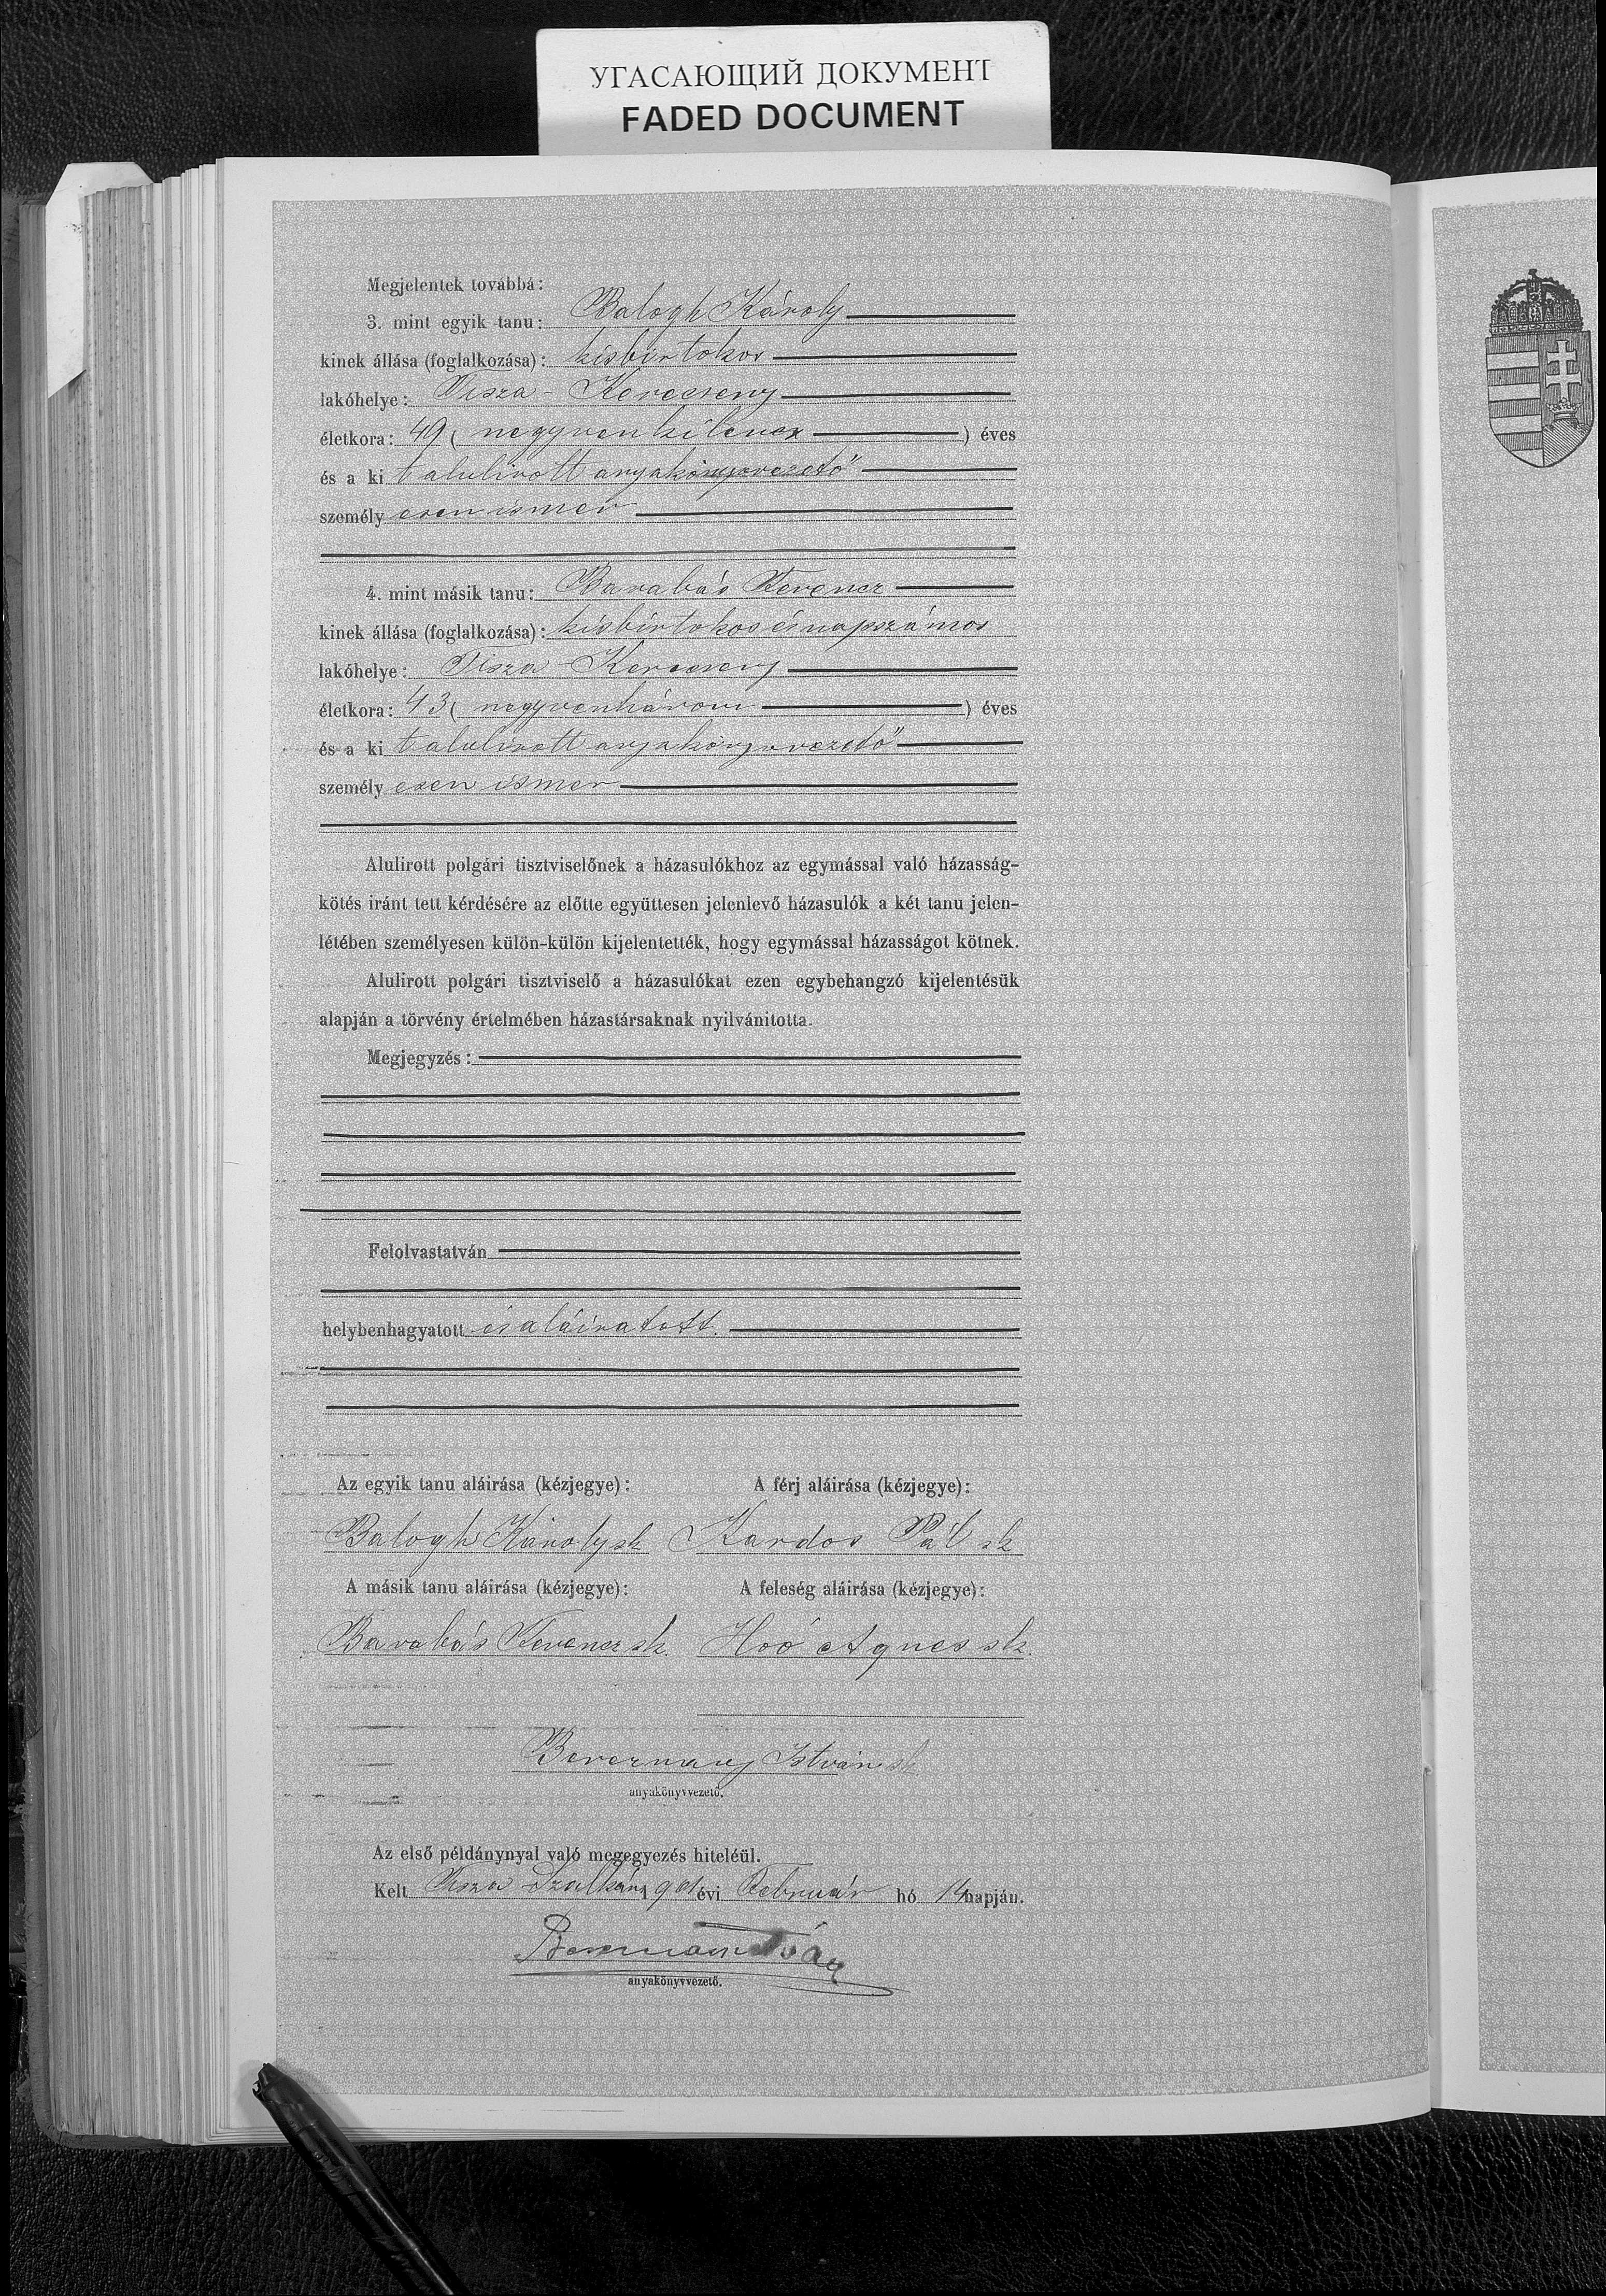 УГАСАЮЩИЙ ДОКУМЕНТ
FADED DOCUMENT
Megjelentek továbbá:
3. mint egyik tanu: Balogh Károly
kinek állása (foglalkozása): kisbirtokos
lakóhelye: Tisza-Kerecseny
életkora: 49 (negyvenkilencz) éves
és a ki t alulirott anyakönyvvezető
személyesen ismer
4. mint másik tanu: Barabás Ferencz
kinek állása (foglalkozása): kisbirtokos és napszámos
lakóhelye: Tisza-Kerecseny
életkora: 43 (negyvenhárom) éves
és a ki t alulirott anyakönyvvezető
személyesen ismer
Alulirott polgári tisztviselőnek a házasulókhoz az egymással való házasság-
kötés iránt tett kérdésére az előtte együttesen jelenlevő házasulók a két tanu jelen-
létében személyesen külön-külön kijelentették, hogy egymással házasságot kötnek.
Alulirott polgári tisztviselő a házasulókat ezen egybehangzó kijelentésük
alapján a törvény értelmében házastársaknak nyilvánitotta.
Megjegyzés:
Felolvastatván
helybenhagyatott és aláiratott.
Az egyik tanu aláirása (kézjegye): A férj aláirása (kézjegye):
Balogh Károly sk Kardos Pál sk
A másik tanu aláirása (kézjegye): A feleség aláirása (kézjegye):
Barabás Ferencz sk. Hoó Agnes sk.
István sk
anyakönyvvezető.
Az első példánynyal való megegyezés hiteléül.
Kelt Tisza Szalkán 1901 évi Február hó 14 napján.
anyakönyvvezető.